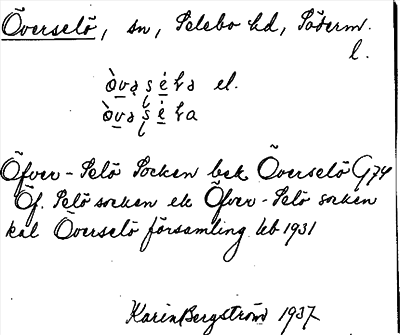 Överselö, sn, Selebo hd, Söderm.
l.
òvaṣéla el.
òvaṣéla
Öfver-Selö Socken bek Överselö G74
Öf. Selö socken ek Öfver-Selö socken
kal Överselö församling. leb 1931
Karin Bergström 1937